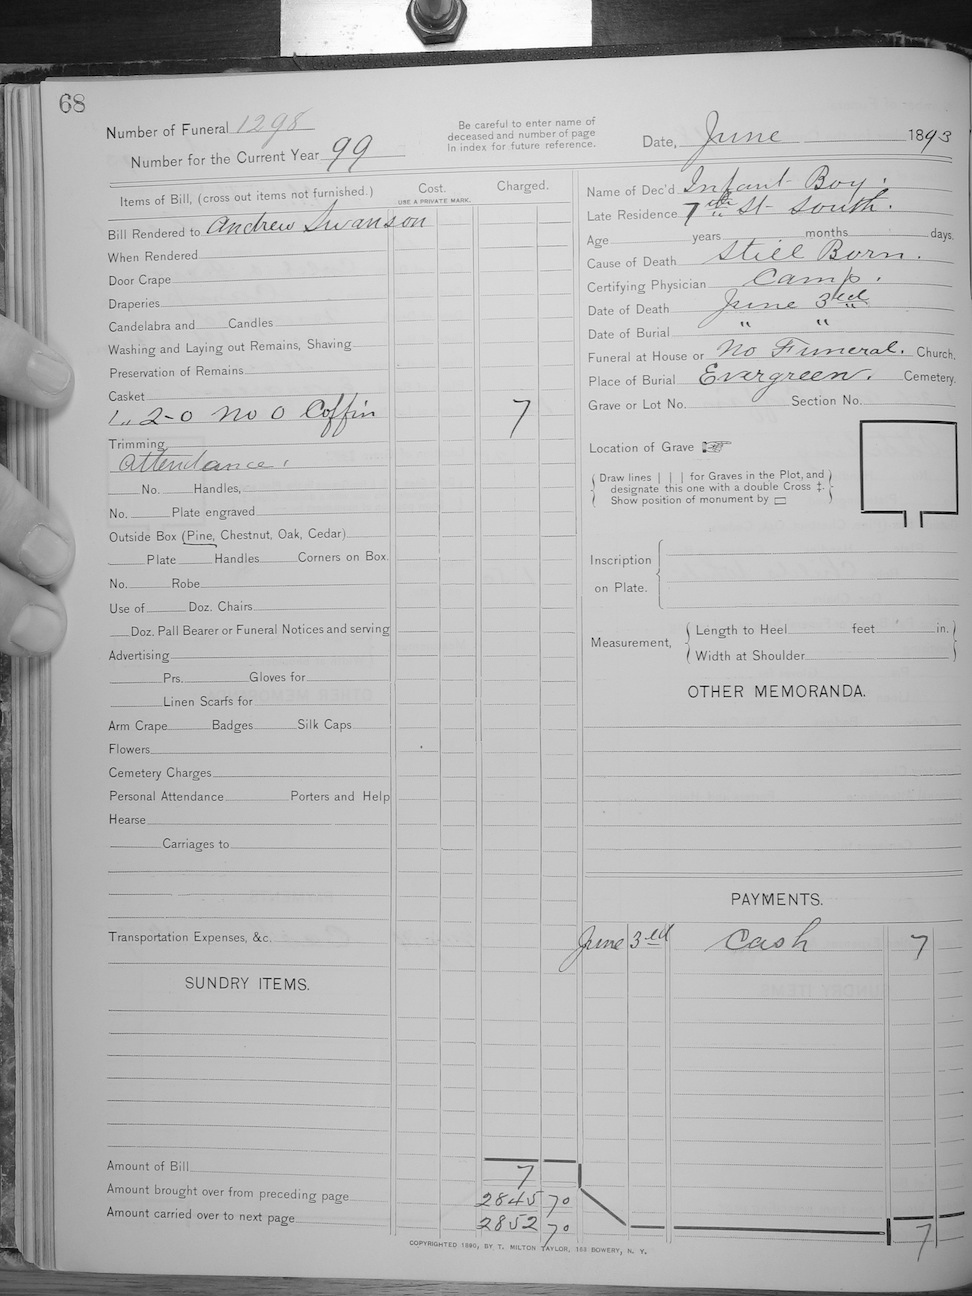 68
Number of Funeral 1298
Number for the Current Year 99
Be careful to enter name of
deceased and number of page
In index for future reference.
Date, June 1893
Items of Bill, (cross out items not furnished.)
Cost.
USE A PRIVATE MARK.
Charged.
Bill Rendered to Andrew Swanson
When Rendered
Door Crape
Draperies
Candelabra and Candles
Washing and Laying out Remains, Shaving
Preservation of Remains
Casket
1,, 2-0 No 0 Coffin 7
Trimming
Attendance.
No. Handles,
No. Plate engraved
Outside Box (Pine, Chestnut, Oak, Cedar)
Plate Handles Corners on Box.
No. Robe
Use of Doz. Chairs
Doz. Pall Bearer or Funeral Notices and serving
Advertising
Prs. Gloves for
Linen Scarfs for
Arm Crape Badges Silk Caps
Flowers
Cemetery Charges
Personal Attendance Porters and Help
Hearse
Carriages to
Transportation Expenses, &c.
SUNDRY ITEMS.
Amount of Bill 7
Amount brought over from preceding page 2845 70
Amount carried over to next page 2852 70
Name of Dec'd Infant Boy.
Late Residence 7th St South.
Age years months days.
Cause of Death Still Born.
Certifying Physician Camp.
Date of Death June 3rd
Date of Burial " "
Funeral at House or No Funeral. Church.
Place of Burial Evergreen. Cemetery.
Grave or Lot No. Section No.
Location of Grave ☞
Draw lines | | | for Graves in the Plot, and
designate this one with a double Cross ‡.
Show position of monument by ▭
Inscription
on Plate.
Measurement,
Length to Heel feet in.
Width at Shoulder
OTHER MEMORANDA.
PAYMENTS.
June 3rd Cash 7
7
COPYRIGHTED 1890, BY T. MILTON TAYLOR, 168 BOWERY, N. Y.